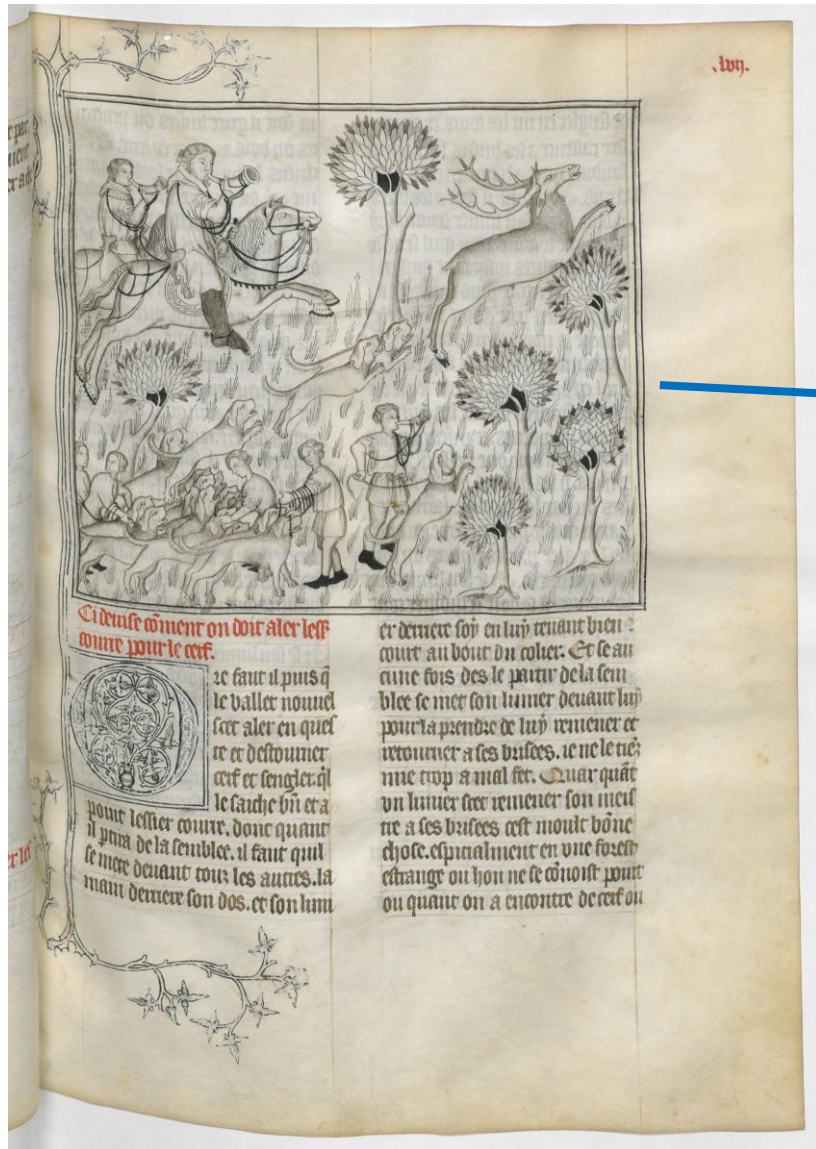 .lvij.
Ci deuise cõment on doit aler less̉
courre pour le cerf.
Ore faut il puis q̃
le vallet nouuel
scet aler en ques
te et destourner
cerf et sengler. q̃l
le saiche bñ et a
point lessier courre. donc quant
il ptira de la semblee. il faut quil
se mete deuant touz les autres. la
main derriere son dos. et son lim
er derriere soy en luy tenant bien
court au bout du colier. Et se au
cune fois des le partir de la sem
blee se met son limier deuant luy
pour la prendre de luy remener et
retourner a ses brisees. ie ne le tiẽ
mie trop a mal fet. Quar quãt
vn limier scet remener son meis
tre a ses brisees cest moult bõne
chose. espicialment en vne forest
estrange ou hon ne se cõnoist point
ou quant on a encontre de cerf ou